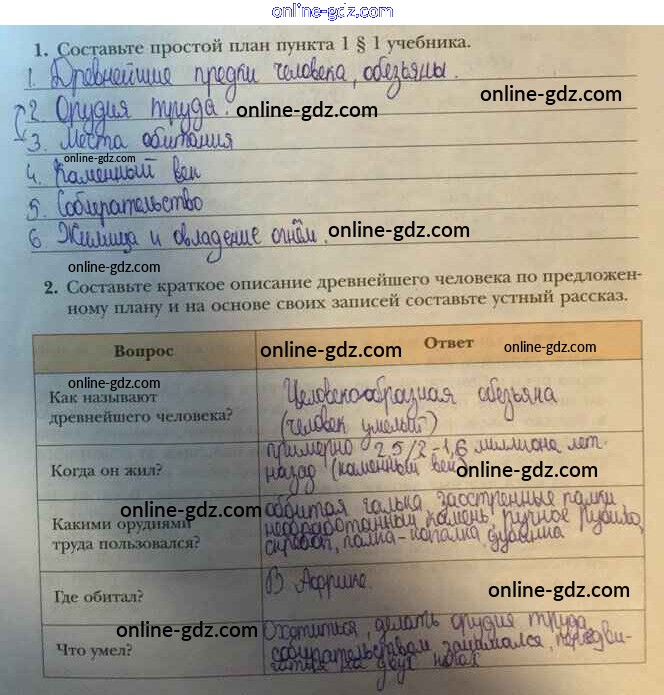 online-gdz.com
1. Составьте простой план пункта 1 § 1 учебника.
1. Древнейшие предки человека, обезьяны.
online-gdz.com
2. Орудия труда.
online-gdz.com
3. Места обитания
online-gdz.com
4. Каменный век
5. Собирательство
6. Жилища и овладение огнём.
online-gdz.com
online-gdz.com
2. Составьте краткое описание древнейшего человека по предложен-
ному плану и на основе своих записей составьте устный рассказ.
Вопрос
online-gdz.com
Ответ
online-gdz.com
online-gdz.com
Как называют
древнейшего человека?
Человекообразная обезьяна
(человек умелый)
Когда он жил?
примерно 2,5/2-1,6 миллиона лет
назад (каменный век)
online-gdz.com
online-gdz.com
Какими орудиями
труда пользовался?
оббитая галька засстренные палки
необработанный камень, ручное рубило,
палка-копалка, дубина
Где обитал?
В Африке.
online-gdz.com
online-gdz.com
Что умел?
Охотиться, делать орудия труда,
собирательством занимался, передви-
на двух ногах